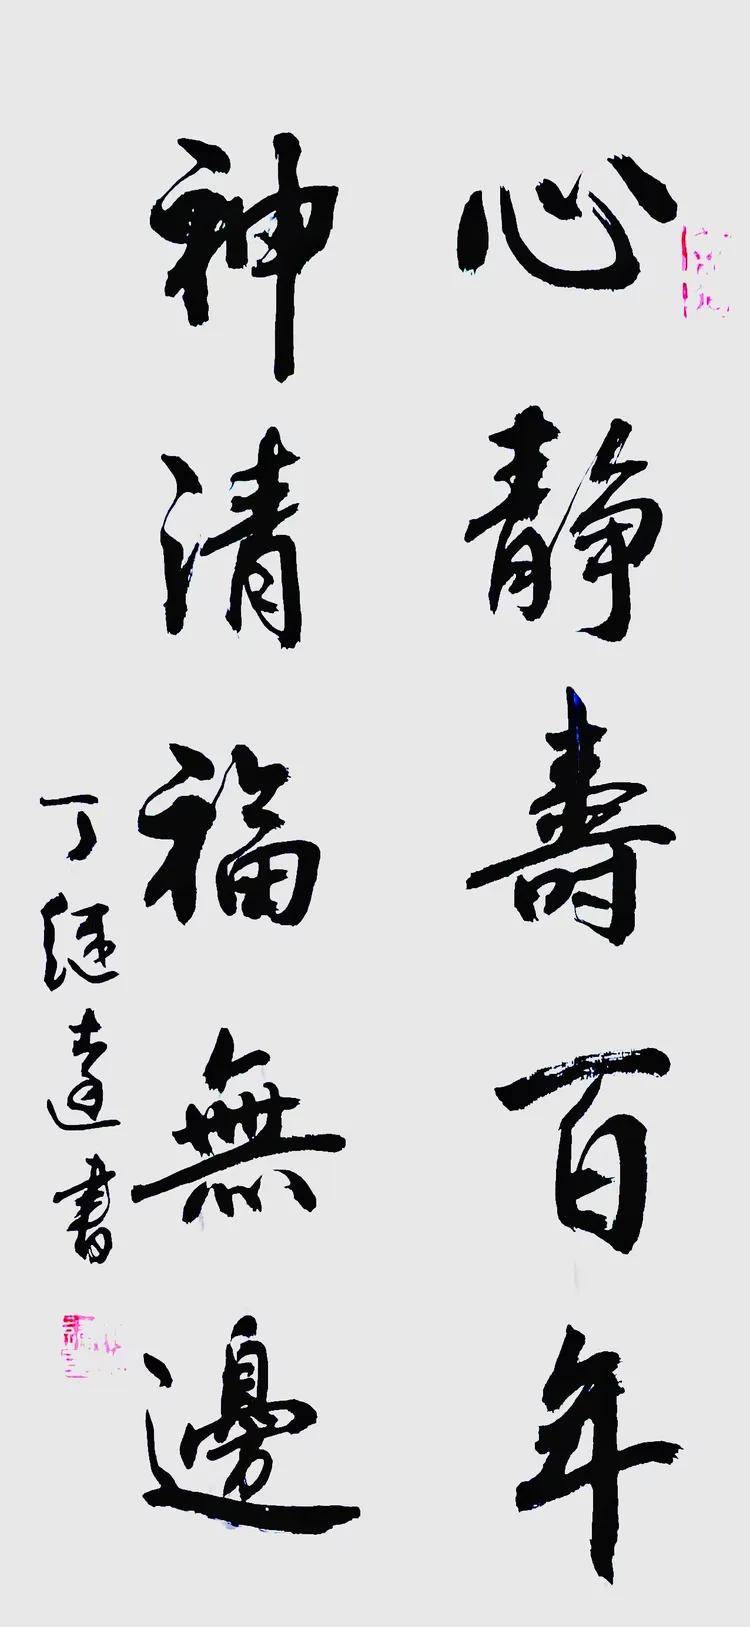 心静壽百年
神清福無邊
丁继達書